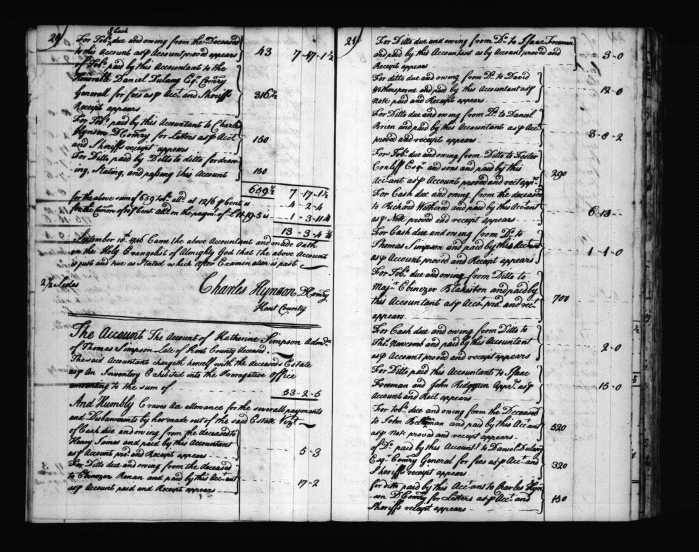 20
For Tobo due and owing from the Deceased
to this Account as p Account proved appears 43 7-17-1½
p Tobo paid by this Accountant to the
Honorable Daniel Dulany Esqr Comry
Generall for fees as p Acct and Sheriffs 316½
Receipt appears
For Tobo paid by this Accountant to Charles
Hynson D Comry for Letters as p Acct 150
and Sheriffs receipt appears
For Ditto paid by Ditto to ditto for draw
ing, Stating, and passing this Account 130
639½ 7-17-1½
for the above sum of 639 Tobo all at 12/6 p Cent is 4-2-6
13-3-4½
September 10th 1726 Came the above Accountant and made Oath
on the Holy Evangelist of Almighty God that the above Account
is just and true as Stated which after Examination is past
Charles Hynson D Comry
Kent County
2½ Sides
The Account The Account of Katherine Simpson Admx
of Thomas Simpson Late of Kent County Deceasd
The said Accountant chargeth herself with the deceaseds Estate
as p An Inventory Exhibited into the Prerogative Office
amounting to the sum of 53-2-6
And Humbly Craves An allowance for the severall payments
and Disbursments by her made out of the said Estate Vizt
of Cash due and owing from the deceased to
Henry James and paid by this Accountant
as p Account prod and Receipt appears 5-3
For Ditto due and owing from the deceased
to Ebenezar and paid by this Accountant
as p Account paid and Receipt appears 17-2
21
For Ditto due and owing from Do to Isaac Freeman
and paid by this Accountant as by Account proved and 3-0
Receipt appears
For ditto due and owing from Do to David
Witherspoone and paid by this Accountant as p 12-0
Note paid and Receipt appears
For Ditto due and owing from Do to Daniel
and paid by this Accountant as p Acct 3-8-2
proved and receipt appears
For Tobo due and owing from Ditto to Foster
Cunliff Esqr and sons and paid by this 290
Accountant as p Account proved and rect appr
For Cash due and owing from the deceased
to Richard and paid by this Accountant 6-13
as p Note proved and receipt appears
For Cash due and owing from Do to
Thomas Simpson and paid by this Accountant 1-4-0
as p Account proved and Receipt appears
For Tobo due and owing from Ditto to
Majr Ebenezer Blakiston and paid by
this Accountant as p Acct prd and rect 700
appears
For Cash due and owing from Ditto to
Thos and paid by this Accountant 2-0
as p Account proved and receipt appears
For Ditto paid this Accountant to Isaac
Freeman and John Ridgman Apprs as p 15-0
Account and Rect appears
For Tobo due and owing from the Deceased
to John and paid by this Accant 520
as p Note proved and receipt appears
p Do paid by this Accountant to Daniel Dulany
Esqr Comry Generall for fees as p Acct and 320
Sheriffs receipt appears
for ditto paid by this Accant to Charles Hyn
son D Comry for Letters as p Acct and 150
Sheriffs receipt appears